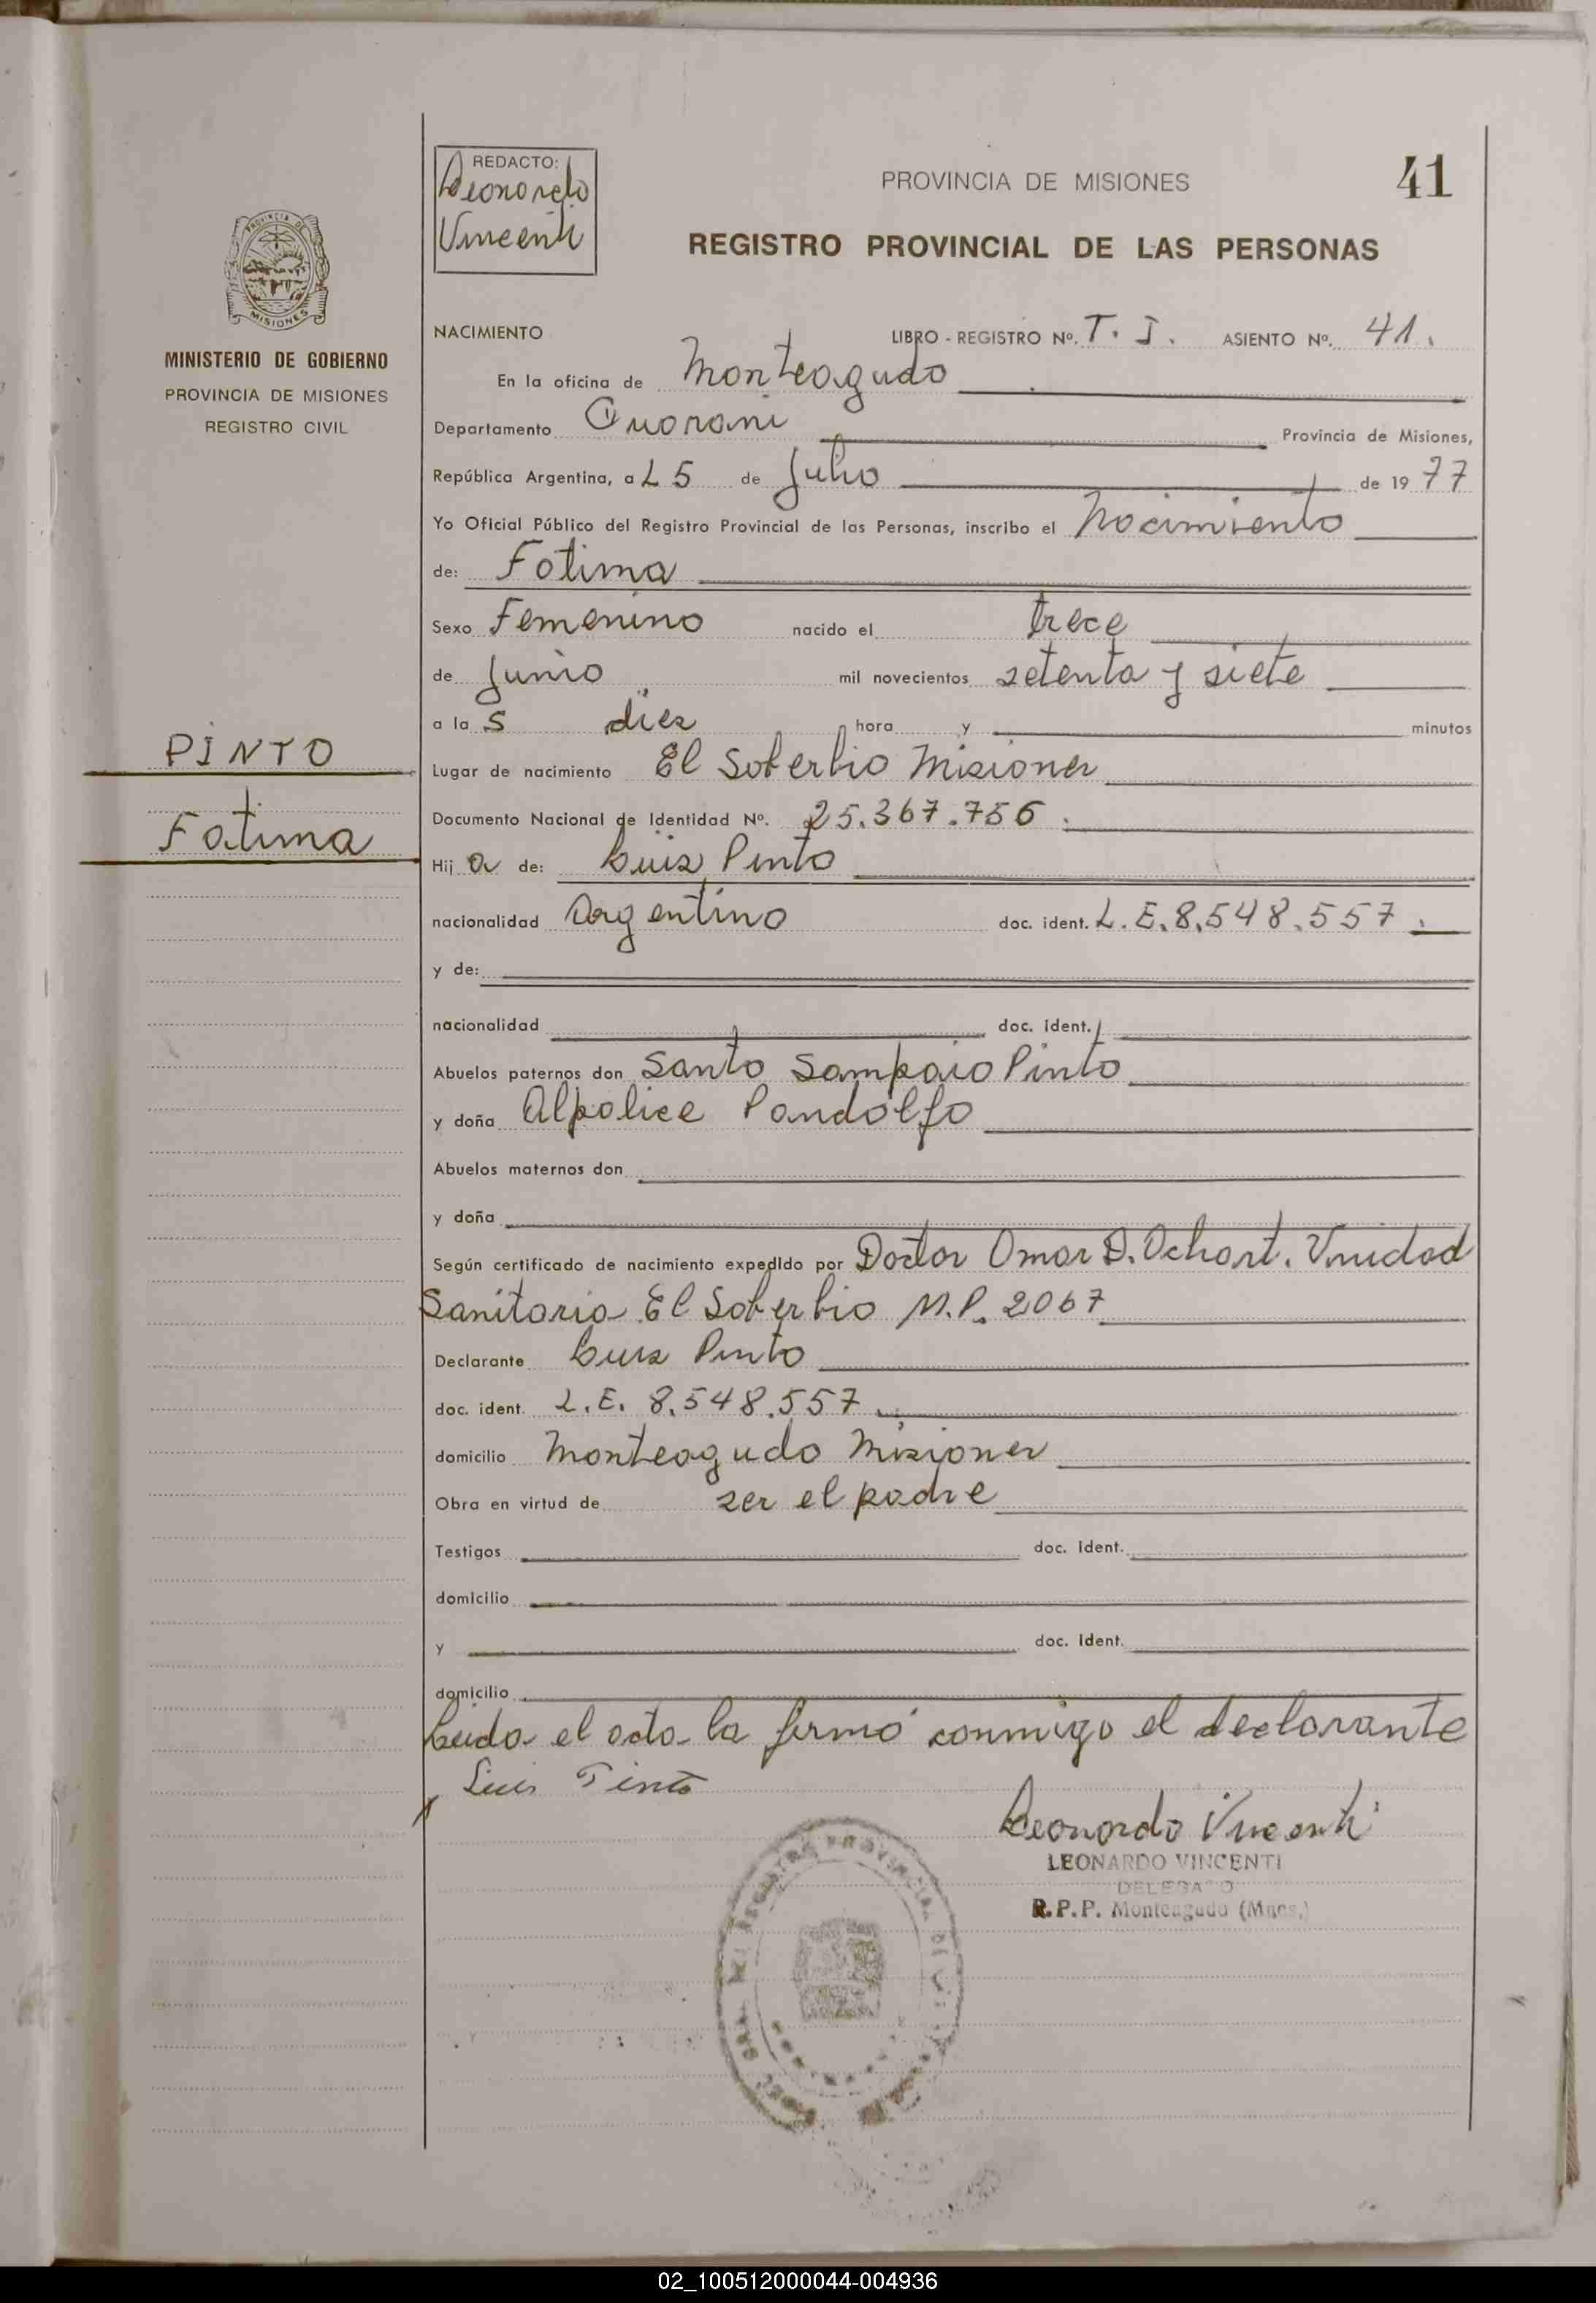 REDACTO:
Leonardo
Vincenti
PROVINCIA DE MISIONES
41
REGISTRO PROVINCIAL DE LAS PERSONAS
PROVINCIA DE
MISIONES
MINISTERIO DE GOBIERNO
PROVINCIA DE MISIONES
REGISTRO CIVIL
NACIMIENTO LIBRO - REGISTRO Nº. T. I. ASIENTO Nº. 41.
En la oficina de Monteagudo
Departamento Guarani Provincia de Misiones,
República Argentina, a 15 de Julio de 1977
Yo Oficial Público del Registro Provincial de las Personas, inscribo el Nacimiento
de: Fatima
Sexo Femenino nacido el trece
de Junio mil novecientos setenta y siete
a la s diez hora y minutos
PINTO
Lugar de nacimiento El Soberbio Misiones
Documento Nacional de Identidad Nº. 25.367.756.
Fatima
Hij a de: Luis Pinto
nacionalidad Argentino doc. ident. L.E. 8.548.557.
y de:
nacionalidad doc. ident.
Abuelos paternos don Santo Sampaio Pinto
y doña Alpalice Pandolfo
Abuelos maternos don
y doña
Según certificado de nacimiento expedido por Doctor Omar D. Ochart. Unidad
Sanitaria El Soberbio M.P. 2067
Declarante Luis Pinto
doc. ident. L.E. 8.548.557.
domicilio Monteagudo Misiones
Obra en virtud de ser el padre
Testigos doc. ident.
domicilio
y doc. ident.
domicilio
Leida el acta la firmó conmigo el declarante
Luis Pinto
Leonardo Vincenti
LEONARDO VINCENTI
DELEGADO
R.P.P. Monteagudo (Mnes.)
02_100512000044-004936